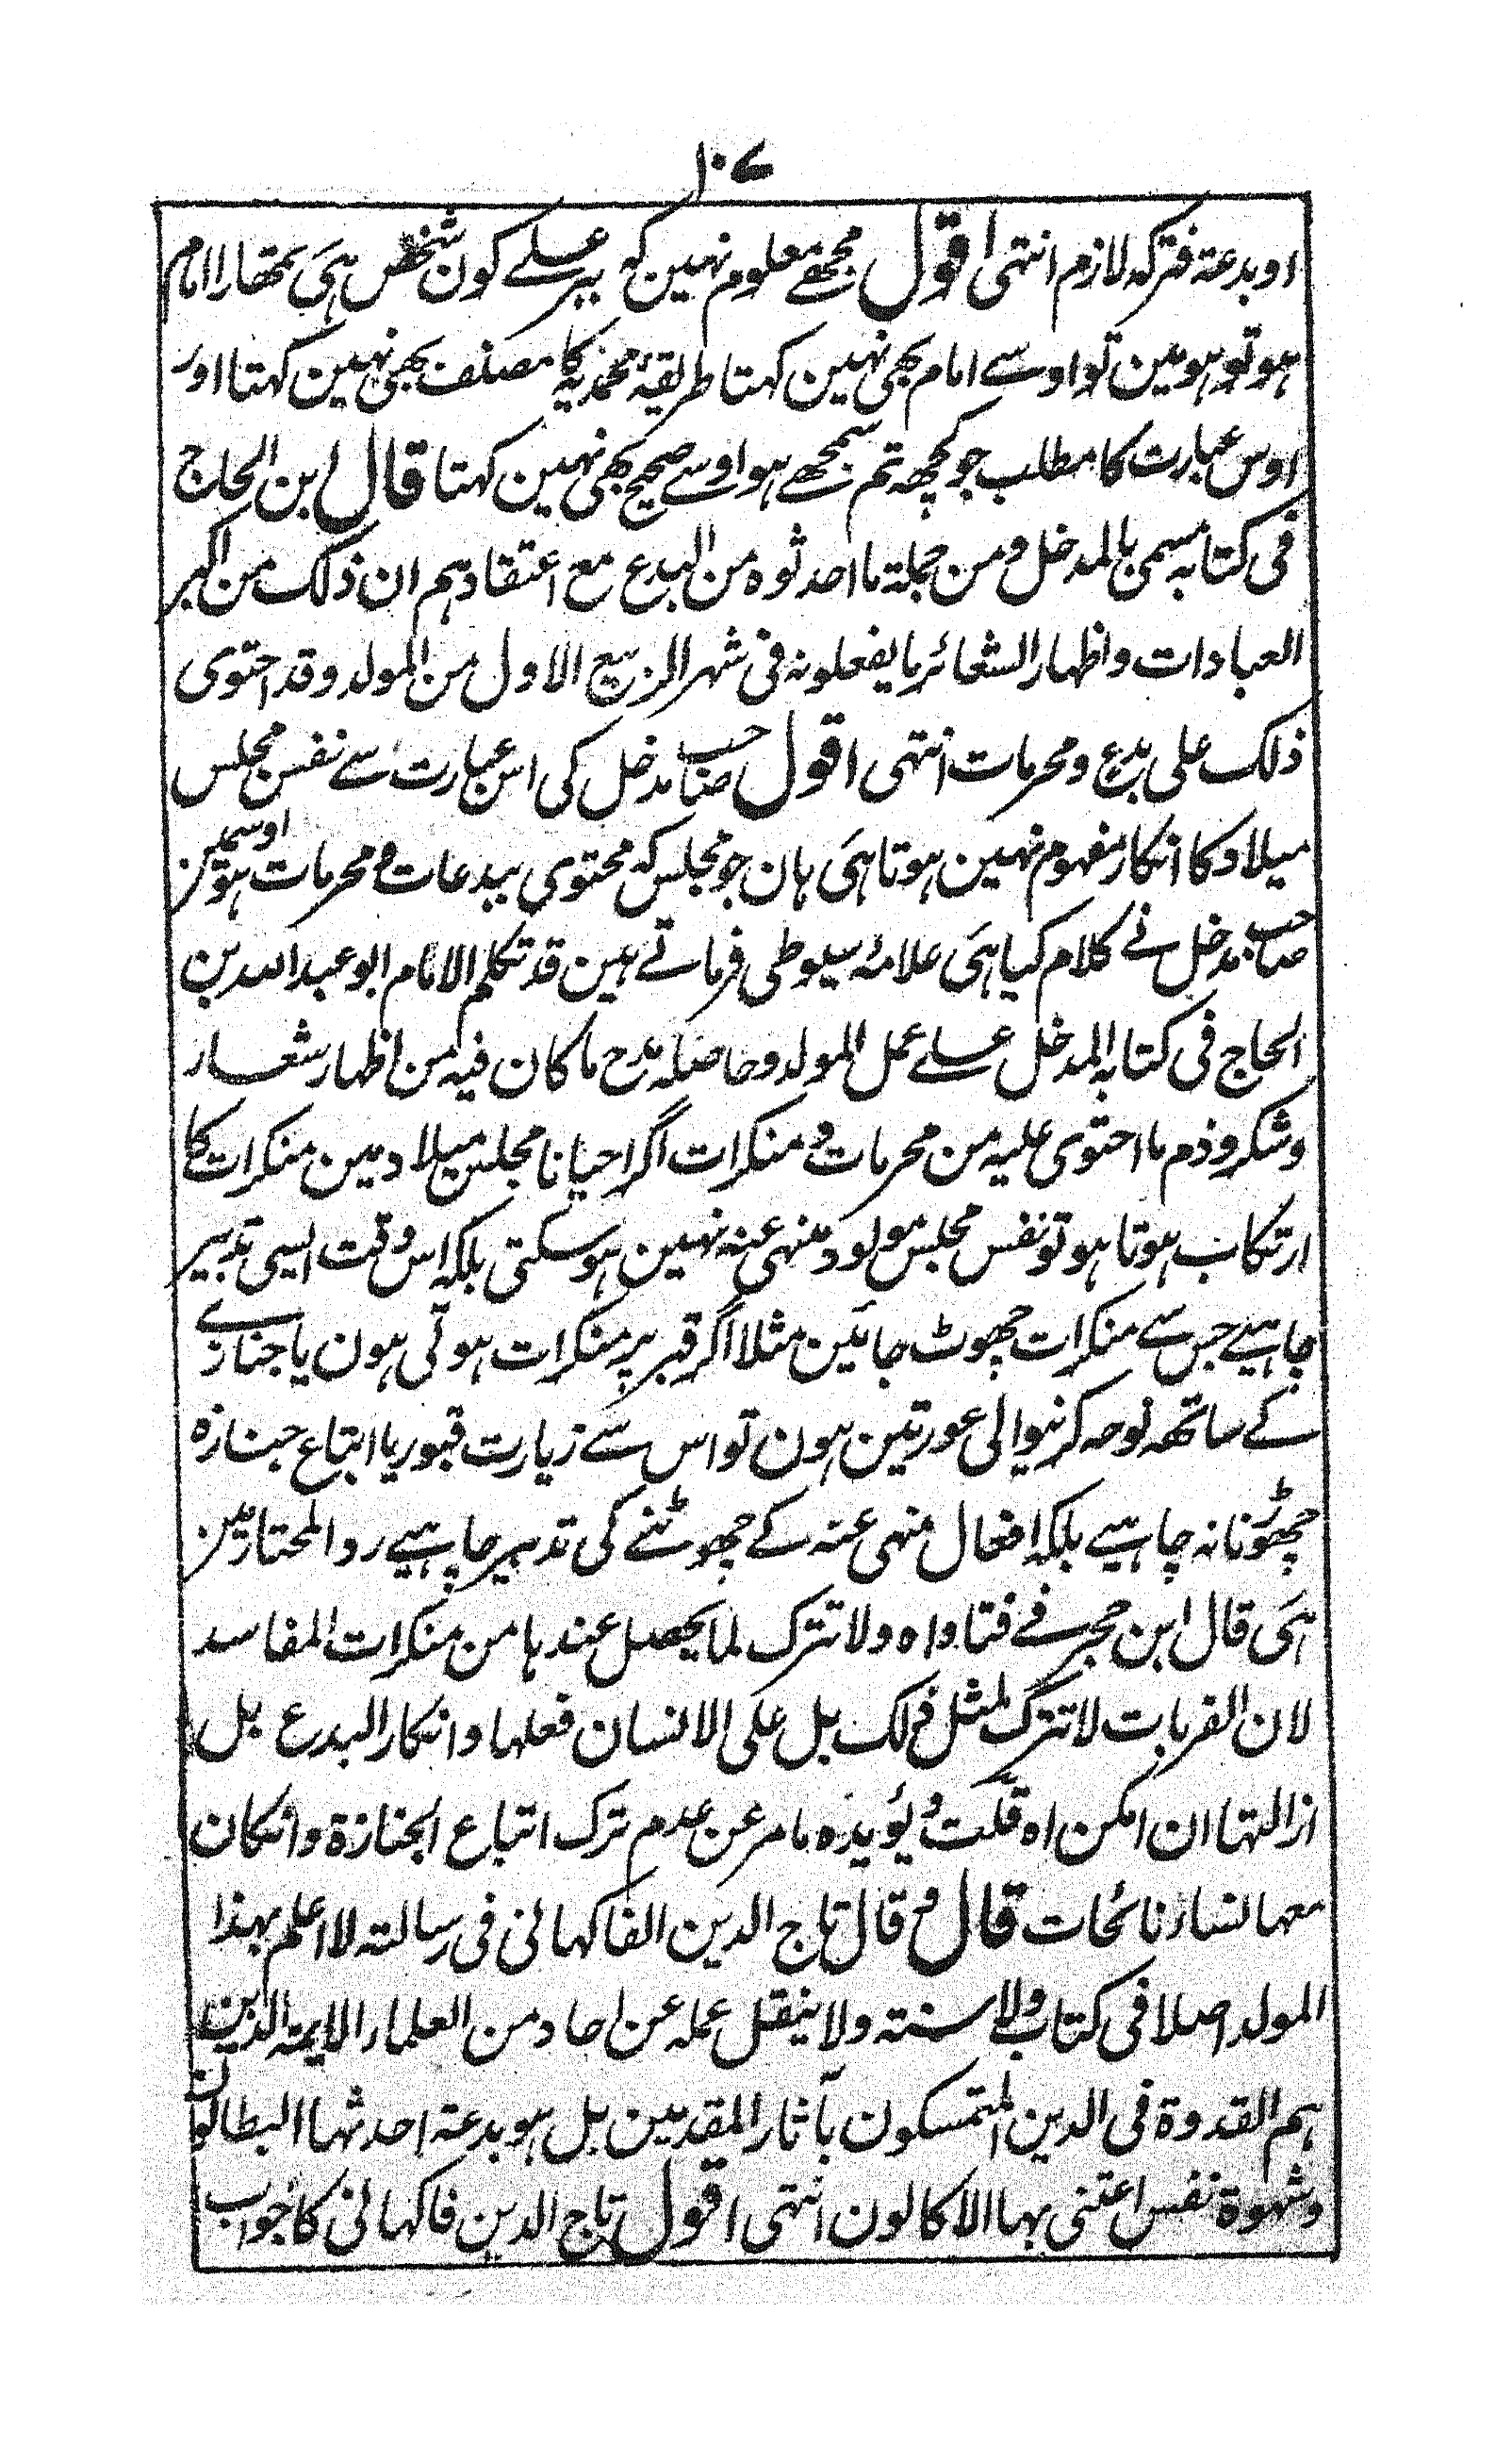 ۱۰۷
او بدعۃ فترکہ لازم انتہی اقول مجھے معلوم نہین کہ بیر علے کون شخص ہی تمھارا امام
ہو تو ہو مین تو اوسے امام بھی نہین کہتا طریقۂ محمدیہ کا مصنف بھی نہین کہتا اور
اوس عبارت کا مطلب جو کچھہ تم سمجھے ہو اوسے صحیح بھی نہین کہتا قال ابن الحاج
فی کتابہ مسمی بالمدخل و من جملۃ ما احدثوہ من البدع مع اعتقادہم ان ذلک من اکبر
العبادات و اظہار الشعائر ما یفعلونہ فی شہر الربیع الاول من المولد و قد احتوی
ذلک علی بدع و محرمات انتہی اقول صاحب مدخل کی اس عبارت سے نفس مجلس
میلاد کا انکار مفہوم نہین ہوتا ہی ہان جو مجلس کہ محتوی ببدعات و محرمات ہو اوسمین
صاحب مدخل نے کلام کیا ہی علامۂ سیوطی فرماتے ہین قد تکلم الامام ابو عبد اللہ بن
الحاج فی کتابہ المدخل علے عمل المولد و حاصلہ مدح ما کان فیہ من اظہار شعار
و شکر و ذم ما احتوی علیہ من محرمات و منکرات اگر احیانا مجلس میلاد مین منکرات کا
ارتکاب ہوتا ہو تو نفس مجلس مولود منہی عنہ نہین ہو سکتی بلکہ اس وقت ایسی تدبیر
چاہیے جس سے منکرات چھوٹ جائین مثلا اگر قبر پر منکرات ہوتی ہون یا جنازے
کے ساتھہ نوحہ کرنیوالی عورتین ہون تو اس سے زیارت قبور یا اتباع جنازہ
چھوڑنا نہ چاہیے بلکہ افعال منہی عنہ کے چھوٹنے کی تدبیر چاہیے رد المحتار مین
ہی قال ابن حجر فے فتاواہ ولا تترک لما یحصل عندہا من منکرات المفاسد
لان القربات لا تترک لمثل ذلک بل علی الانسان فعلہا و انکار البدع بل
ازالتہا ان امکن اہ قلت و یؤیدہ ما مر عن عدم ترک اتباع الجنازۃ و انکان
معہا نساء نائحات قال و قال تاج الدین الفاکہانی فی رسالتہ لا اعلم بہذا
المولد اصلا فی کتاب ولا سنتہ ولا ینقل عملہ عن احاد من العلماء الایمۃ الذین
ہم القدوۃ فی الدین المتمسکون بآثار المقدمین بل ہو بدعۃ احدثہا البطالون
و شہوۃ نفس اعتنی بہا الاکالون انتہی اقول تاج الدین فاکہانی کا جواب